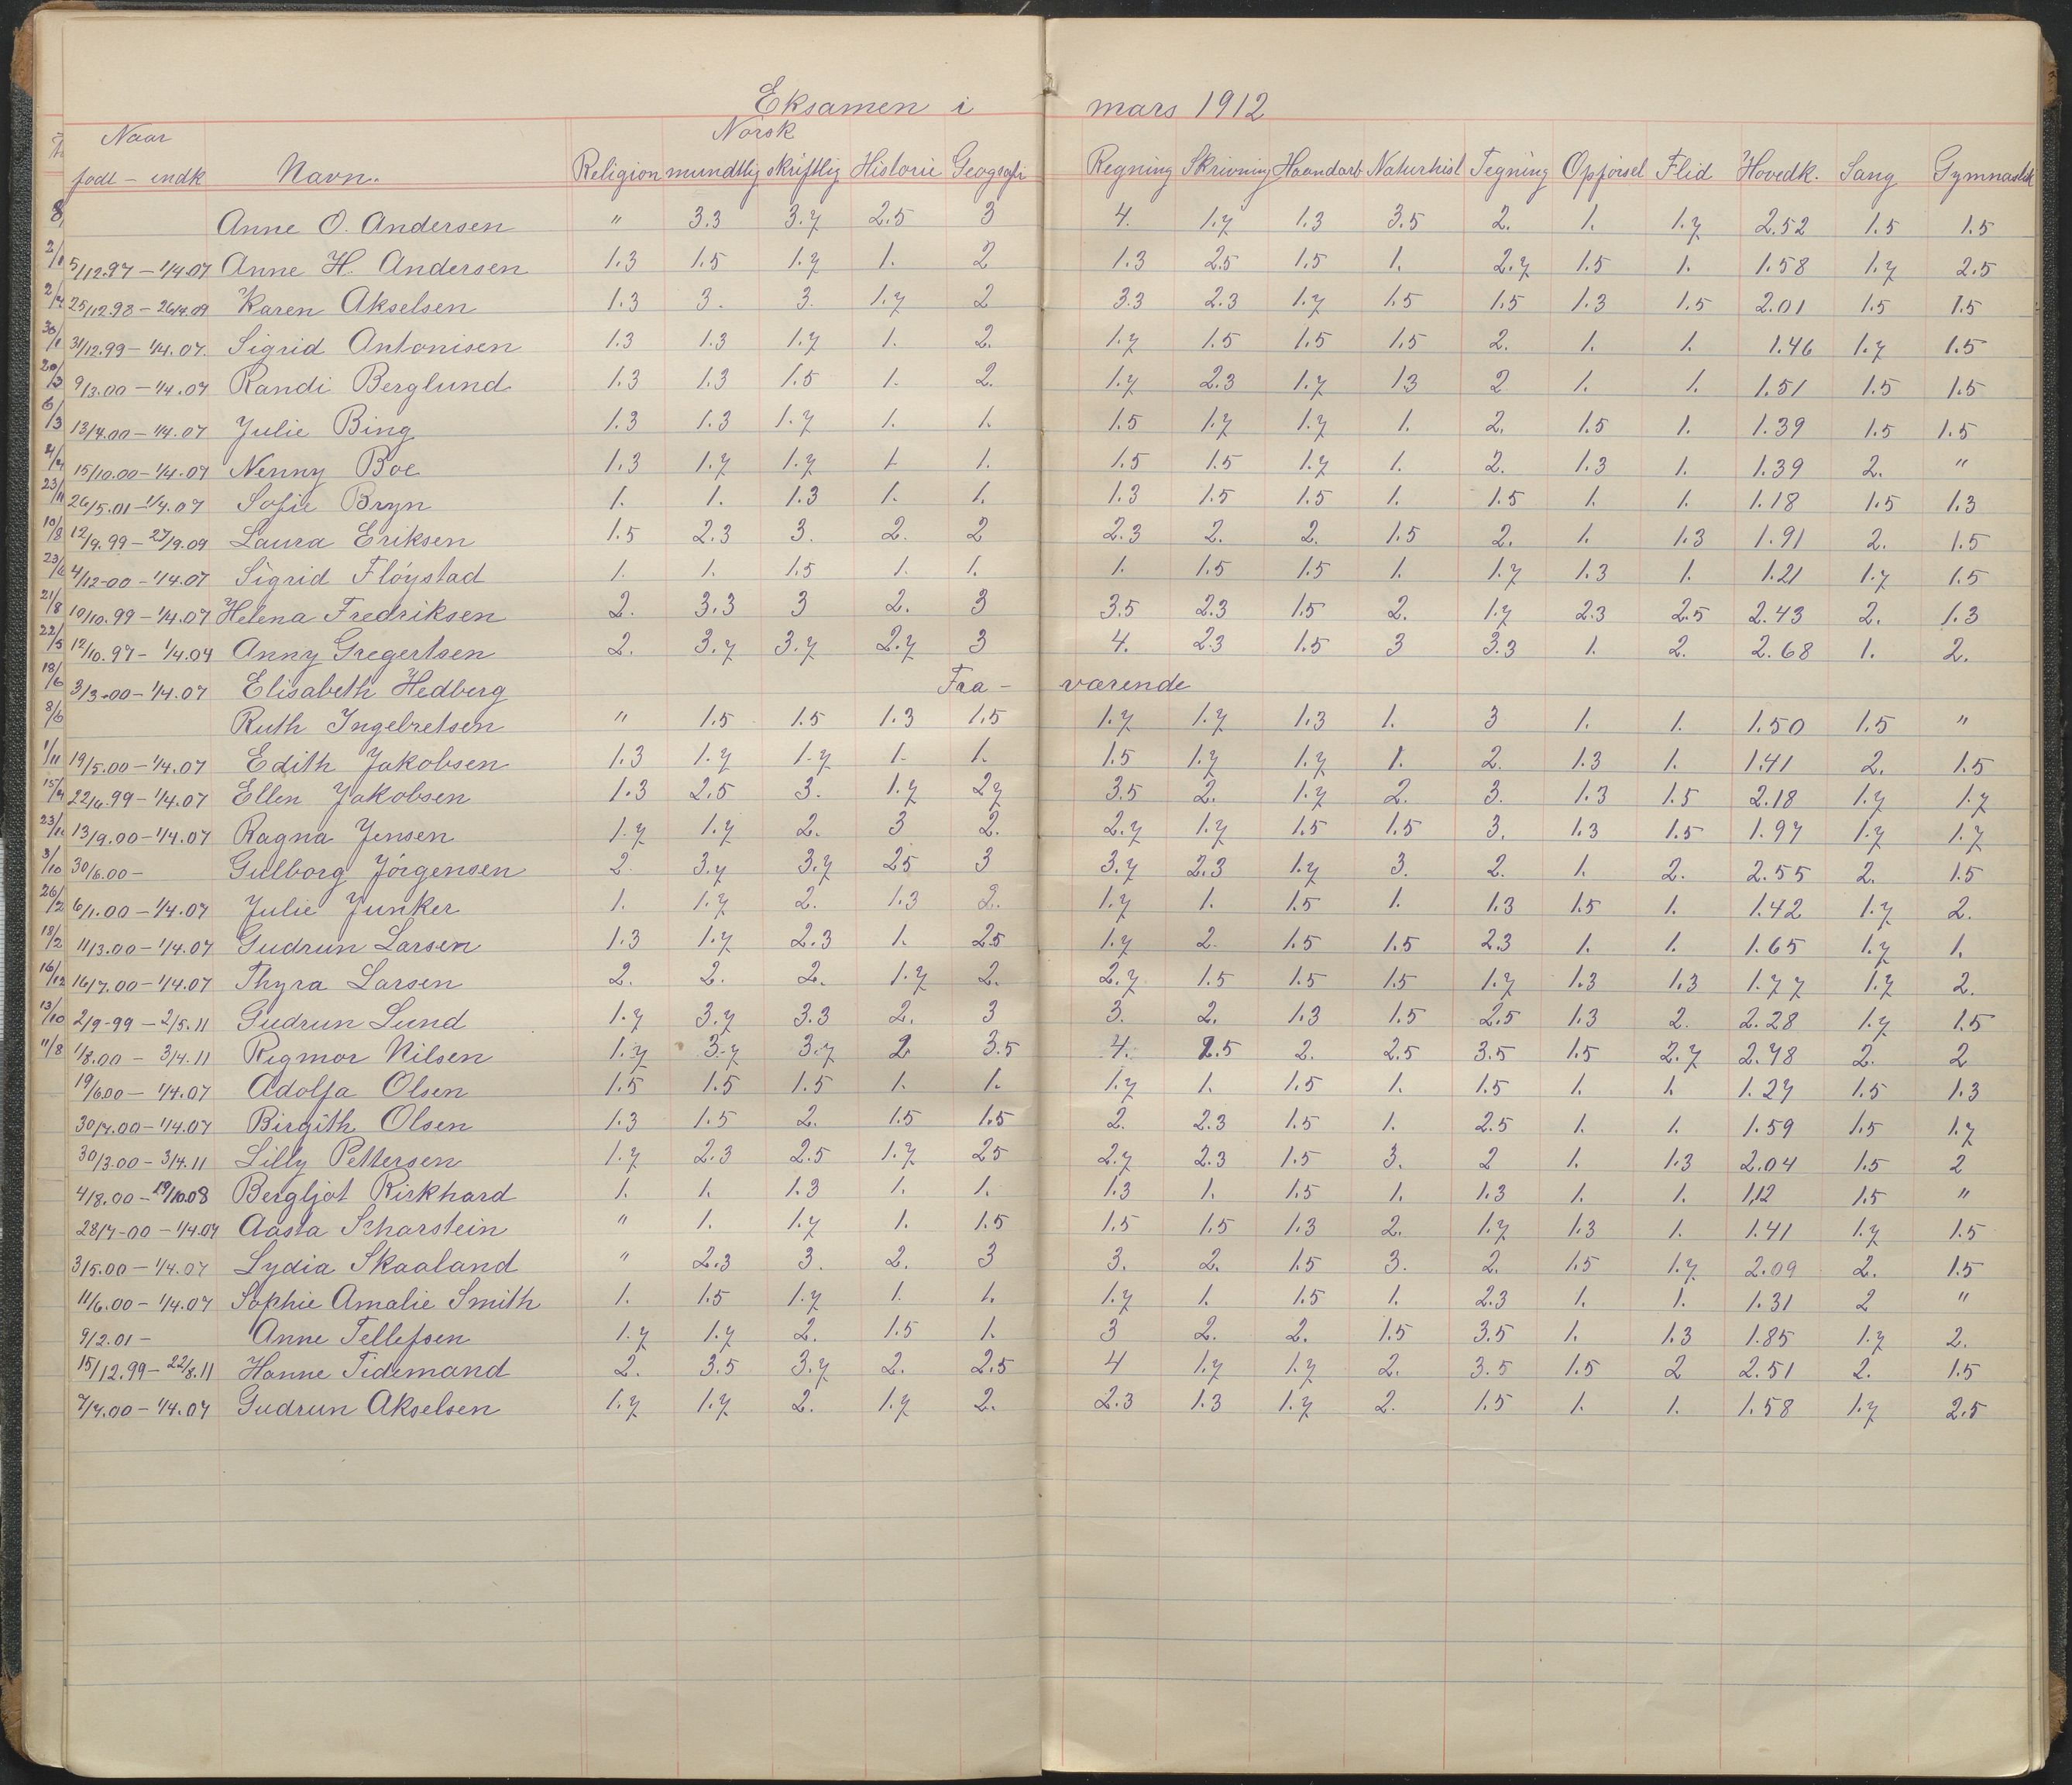 Eksamen i mars 1912
Naar Norsk
født – indk Navn. Religion mundtlig skriftlig Historie Geografi Regning Skrivning Haandarb Naturhist Tegning Opførsel Flid Hovedk. Sang Gymnastik
Anne O. Andersen " 3.3 3.7 2.5 3 4. 1.7 1.3 3.5 2. 1. 1.7 2.52 1.5 1.5
5/12.97 – 1/4.07 Anne H. Andersen 1.3 1.5 1.7 1. 2 1.3 2.5 1.5 1. 2.7 1.5 1. 1.58 1.7 2.5
25/12.98 – 26/4.09 Karen Akselsen 1.3 3. 3. 1.7 2 3.3 2.3 1.7 1.5 1.5 1.3 1.5 2.01 1.5 1.5
31/12.99 – 1/4.07. Sigrid Antonisen 1.3 1.3 1.7 1. 2. 1.7 1.5 1.5 1.5 2. 1. 1. 1.46 1.7 1.5
9/3.00 – 1/4.07 Randi Berglund 1.3 1.3 1.5 1. 2. 1.7 2.3 1.7 1.3 2 1. 1. 1.51 1.5 1.5
13/4.00 – 1/4.07 Julie Bing 1.3 1.3 1.7 1. 1. 1.5 1.7 1.7 1. 2. 1.5 1. 1.39 1.5 1.5
15/10.00 – 1/4.07 Nenny Boe 1.3 1.7 1.7 1. 1. 1.5 1.5 1.7 1. 2. 1.3 1. 1.39 2. "
26/5.01 – 1/4.07 Sofie Bryn 1. 1. 1.3 1. 1. 1.3 1.5 1.5 1. 1.5 1. 1. 1.18 1.5 1.3
12/9.99 – 27/9.09 Laura Eriksen 1.5 2.3 3. 2. 2 2.3 2. 2. 1.5 2. 1. 1.3 1.91 2. 1.5
4/12-00 – 1/4.07 Sigrid Fløystad 1. 1. 1.5 1. 1. 1. 1.5 1.5 1. 1.7 1.3 1. 1.21 1.7 1.5
10/10.99 – 1/4.07 Helena Fredriksen 2. 3.3 3 2. 3 3.5 2.3 1.5 2. 1.7 2.3 2.5 2.43 2. 1.3
12/10.97 – 1/4.04 Anny Gregertsen 2. 3.7 3.7 2.7 3 4. 2.3 1.5 3 3.3 1. 2. 2.68 1. 2.
3/3-00 – 1/4.07 Elisabeth Hedberg Fra – værende
Ruth Ingebretsen " 1.5 1.5 1.3 1.5 1.7 1.7 1.3 1. 3 1. 1. 1.50 1.5 "
19/5.00 – 1/4.07 Edith Jakobsen 1.3 1.7 1.7 1. 1. 1.5 1.7 1.7 1. 2. 1.3 1. 1.41 2. 1.5
22/6.99 – 1/4.07 Ellen Jakobsen 1.3 2.5 3. 1.7 27 3.5 2. 1.7 2. 3. 1.3 1.5 2.18 1.7 1.7
13/9.00 – 1/4.07 Ragna Jensen 1.7 1.7 2. 3 2. 2.7 1.7 1.5 1.5 3. 1.3 1.5 1.97 1.7 1.7
30/6.00 – Gulborg Jørgensen 2. 3.7 3.7 25 3 3.7 2.3 1.7 3. 2. 1. 2. 2.55 2. 1.5
6/1.00 – 1/4.07 Julie Junker 1. 1.7 2. 1.3 2. 1.7 1. 1.5 1. 1.3 1.5 1. 1.42 1.7 2.
11/3.00 – 1/4.07 Gudrun Larsen 1.3 1.7 2.3 1. 25 1.7 2. 1.5 1.5 2.3 1. 1. 1.65 1.7 1.
16/7.00 – 1/4.07 Thyra Larsen 2. 2. 2. 1.7 2. 2.7 1.5 1.5 1.5 1.7 1.3 1.3 1.77 1.7 2.
2/9-99 – 2/5.11 Gudrun Lund 1.7 3.7 3.3 2. 3 3. 2. 1.3 1.5 2.5 1.3 2. 2.28 1.7 1.5
1/8.00 – 3/4.11 Rigmor Nilsen 1.7 3.7 3.7 2. 3.5 4. 2.5 2. 2.5 3.5 1.5 2.7 2.78 2. 2
19/6.00 – 1/4.07 Adolfa Olsen 1.5 1.5 1.5 1. 1. 1.7 1. 1.5 1. 1.5 1. 1. 1.27 1.5 1.3
30/7.00 – 1/4.07 Birgith Olsen 1.3 1.5 2. 1.5 1.5 2. 2.3 1.5 1. 2.5 1. 1. 1.59 1.5 1.7
30/3.00 – 3/4.11 Lilly Pettersen 1.7 2.3 2.5 1.7 25 2.7 2.3 1.5 3. 2 1. 1.3 2.04 1.5 2
4/8.00 – 19/10.08 Bergljot Rirkhard 1. 1. 1.3 1. 1. 1.3 1. 1.5 1. 1.3 1. 1. 1,12 1.5 "
28/7-00 – 1/4.07 Aasta Scharstein " 1. 1.7 1. 1.5 1.5 1.5 1.3 2. 1.7 1.3 1. 1.41 1.7 1.5
3/5.00 – 1/4.07 Lydia Skaaland " 2.3 3. 2. 3 3. 2. 1.5 3. 2. 1.5 1.7 2.09 2. 1.5
11/6.00 – 1/4.07 Sophie Amalie Smith 1. 1.5 1.7 1. 1. 1.7 1. 1.5 1. 2.3 1. 1. 1.31 2 "
9/2.01 – Anne Tellefsen 1.7 1.7 2. 1.5 1. 3 2. 2. 1.5 3.5 1. 1.3 1.85 1.7 2.
15/12.99 – 22/8.11 Hanne Tidemand 2. 3.5 3.7 2. 2.5 4 1.7 1.7 2. 3.5 1.5 2 2.51 2. 1.5
7/7.00 – 1/4.07 Gudrun Akselsen 1.7 1.7 2. 1.7 2. 2.3 1.3 1.7 2. 1.5 1. 1. 1.58 1.7 2.5